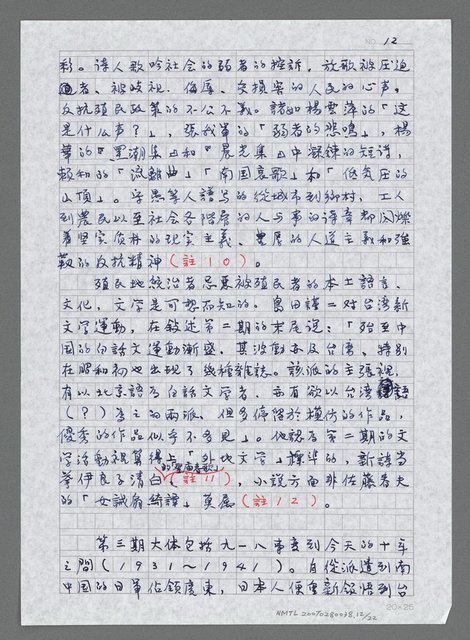 NO. 12
彩。诗人歌吟社会的弱者的控訴，放歌被圧迫
者、被歧視、侮辱、受損害的人民的心声。
反抗殖民政策的不公不義。諸如楊雲萍的「这
是什么声？」，張我軍的「弱者的悲鳴」，楊
華的『黑潮集』和『晨光集』中凝鍊的短詩，
賴和的「流離曲」「南国哀歌」和「低気圧的
山頂」。守愚等人譜写的從城市到鄉村，工人
到農民以至社会各階層的人与事的诗章都闪爍
着堅実质朴的現実主義、豊厚的人道主義和强
靱的反抗精神（註10）。
殖民地統治者忌惡被殖民者的本土語言、
文化，文学是可想而知的。島田謹二对台湾新
文学運動，在敍述第二期的末尾说：「殆至中
国的白話文運動漸盛，其波動亦及台湾，特別
在昭和初也出現了幾種雜誌。該派的主張視，
有以北京語為白話文学者，亦有欲以台湾語
（？）為之的兩派，但多停留於模仿的作品，
優秀的作品似乎不多見」。他認為第二期的文
学活動視算得上「外地文学」標準的，新詩当
举伊良子清白的「聖廟春歌」（註11），小説方面非佐藤春夫
的「女誡扇綺譚」莫屬（註12）。
第三期大体包括九一八事变到今天的十年
之間（1931～1941）。自從派遣到南
中国的日軍佔領廣東，日本人便重新領悟到台
20×25
NMTL 20070280038,12/22